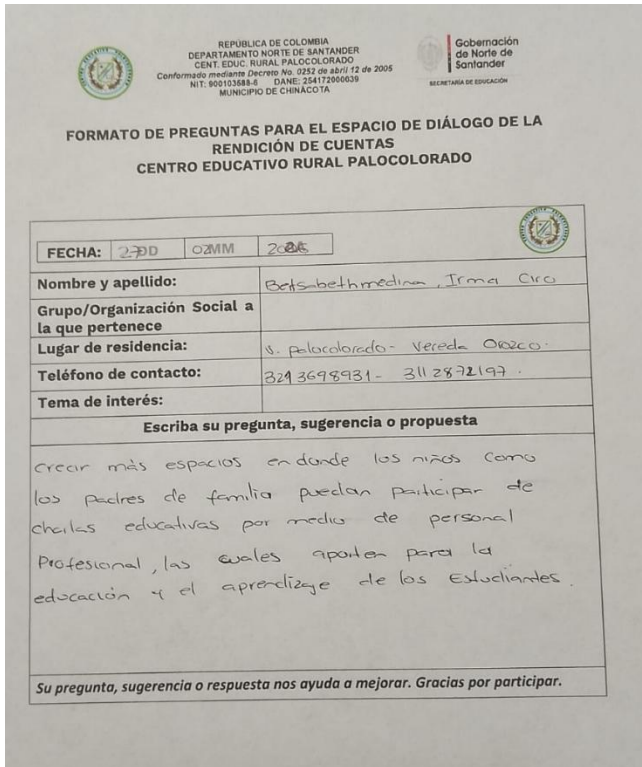 REPÚBLICA DE COLOMBIA
DEPARTAMENTO NORTE DE SANTANDER
CENT. EDUC. RURAL PALOCOLORADO
Conformado mediante Decreto No. 0252 de abril 12 de 2005
NIT: 900103588-6 DANE: 254172000039
MUNICIPIO DE CHINÁCOTA
Gobernación
de Norte de
Santander
SECRETARÍA DE EDUCACIÓN
FORMATO DE PREGUNTAS PARA EL ESPACIO DE DIÁLOGO DE LA
RENDICIÓN DE CUENTAS
CENTRO EDUCATIVO RURAL PALOCOLORADO
FECHA: 27DD 02MM
Nombre y apellido: Betsabeth medina, Irma Ciro
Grupo/Organización Social a
la que pertenece
Lugar de residencia: V. palocolorado - Vereda Orozco.
Teléfono de contacto: 3213698931 - 3112872197.
Tema de interés:
Escriba su pregunta, sugerencia o propuesta
crear más espacios en donde los niños como
los padres de familia puedan participar de
charlas educativas por medio de personal
Profesional, las cuales aporten para la
educación y el aprendizaje de los Estudiantes.
Su pregunta, sugerencia o respuesta nos ayuda a mejorar. Gracias por participar.